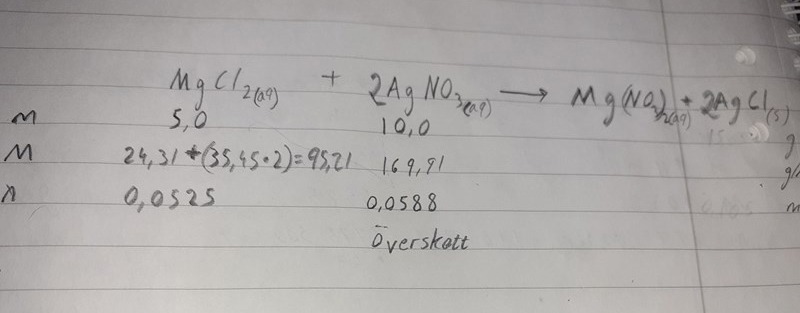 MgCl₂(aq) + 2AgNO₃(aq) → Mg(NO₃)₂(aq) + 2AgCl(s)
m 5,0 10,0 g
M 24,31+(35,45·2)=95,21 169,91 g/
n 0,0525 0,0588 m
Överskott